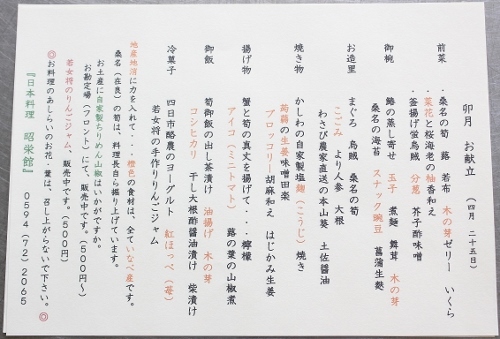 卯月　お献立　（四月　二十五日）
前菜　・桑名の筍　蕗　若布　木の芽ゼリー　いくら
・菜花と桜海老の柚香和え
・釜揚げ蛍烏賊　分葱　芥子酢味噌
御椀　鰆の蒸し寄せ　玉子　煮麺　舞茸　木の芽
桑名の海苔　スナック豌豆　菖蒲生麩
お造里　まぐろ　烏賊　桑名の筍
こごみ　より人参　大根
わさび農家直送の本山葵　土佐醤油
焼き物　かしわの自家製塩麹（こうじ）焼き
蒟蒻の生姜味噌田楽
ブロッコリー胡麻和え　はじかみ生姜
揚げ物　蟹と筍の真丈を揚げて・・・檸檬
アイコ（ミニトマト）　蕗の葉の山椒煮
御飯　筍御飯の出し茶漬け　油揚げ　木の芽
コシヒカリ　干し大根酢醤油漬け　柴漬け
冷菓子　四日市酪農のヨーグルト　紅ほっぺ（苺）
若女将の手作りりんごジャム
地産地消に力を入れて・・・橙色の食材は、全ていなべ産です。
桑名（在良）の筍は、料理長自ら掘り上げています。
お土産に自家製ちりめん山椒はいかがですか。
お勘定場（フロント）にて、販売中です。（500円～）
若女将のりんごジャム、販売中です。（500円）
◎お料理のあしらいのお花・葉は、召し上がらないで下さい。◎
『日本料理　昭栄館』　0594（72）2065